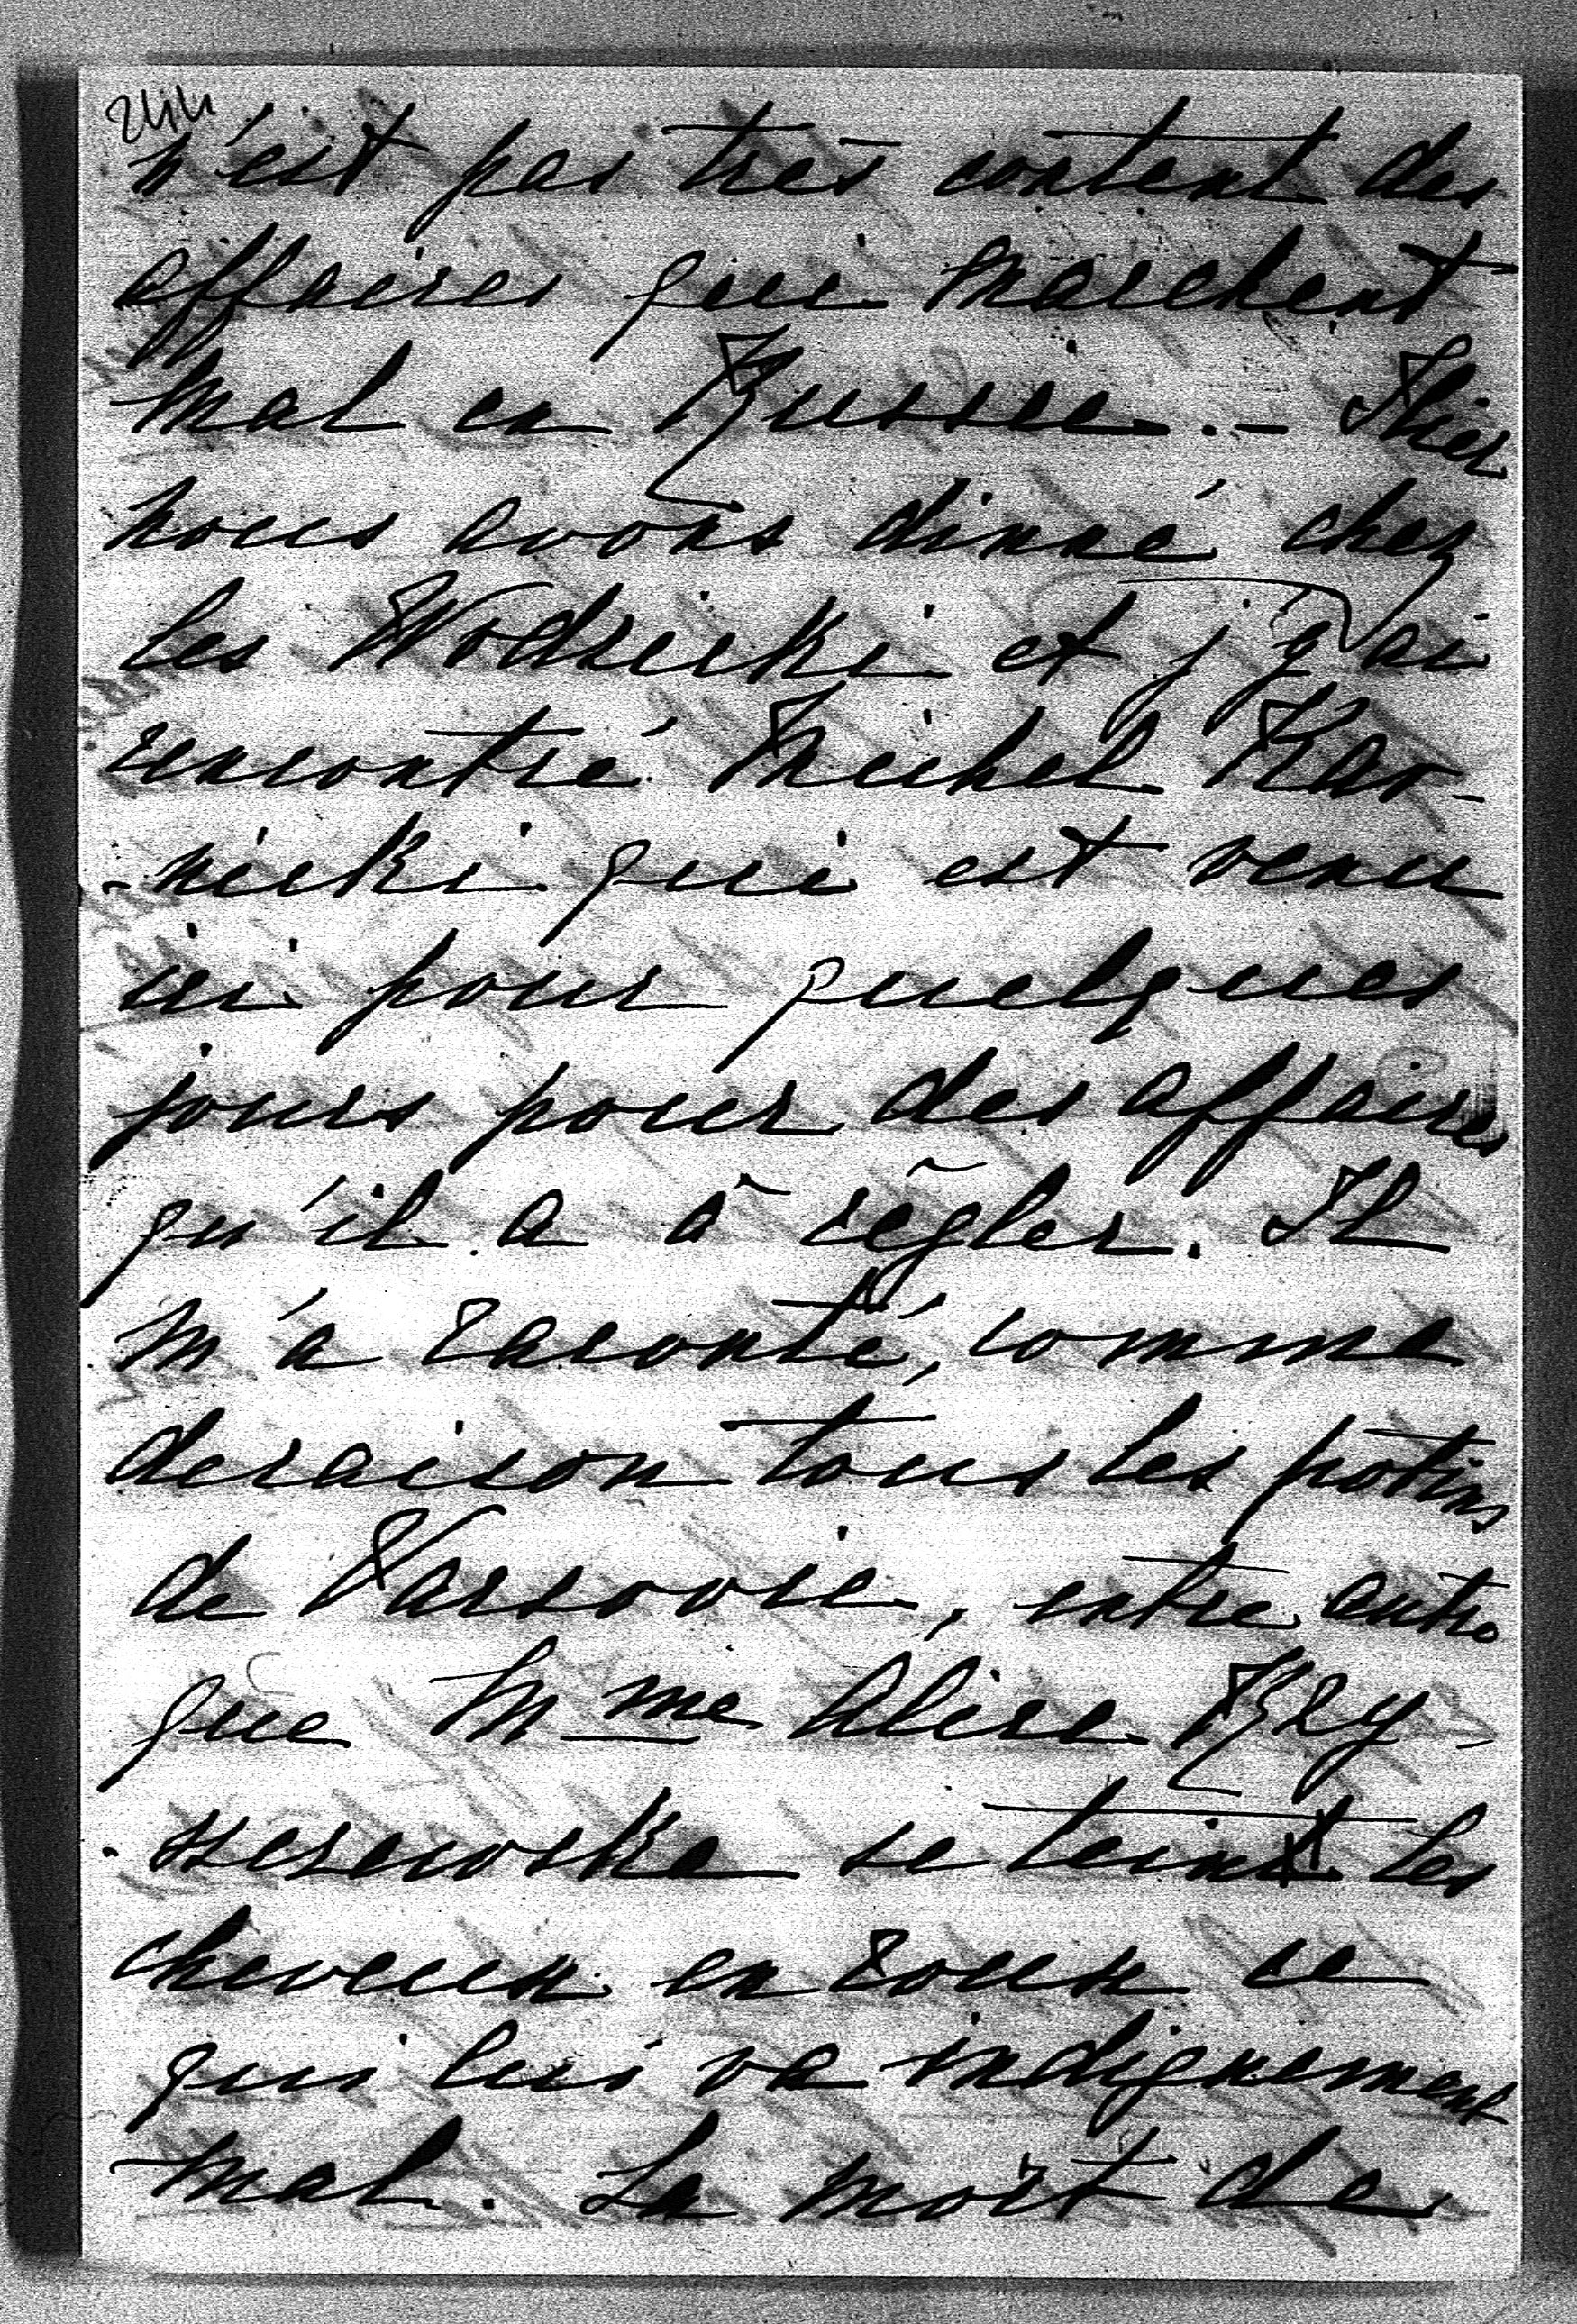 244
n'est pas très content des
affaires qui marchent
mal en Russie. – Hier
nous avons dinné chez
les Wodzicki et j'y ai
rencontré Michel Kar-
-nicki qui est venu
ici pour quelques
jours pour des affaires
qu'il a à règler. Il
m'a raconté, comme
deraison tous les potins
de Varsovie, entre autre
que Mme Alice Rzy-
-szczewska se teint les
cheveux en roux ce
qui lui va indignement
mal. La mort de